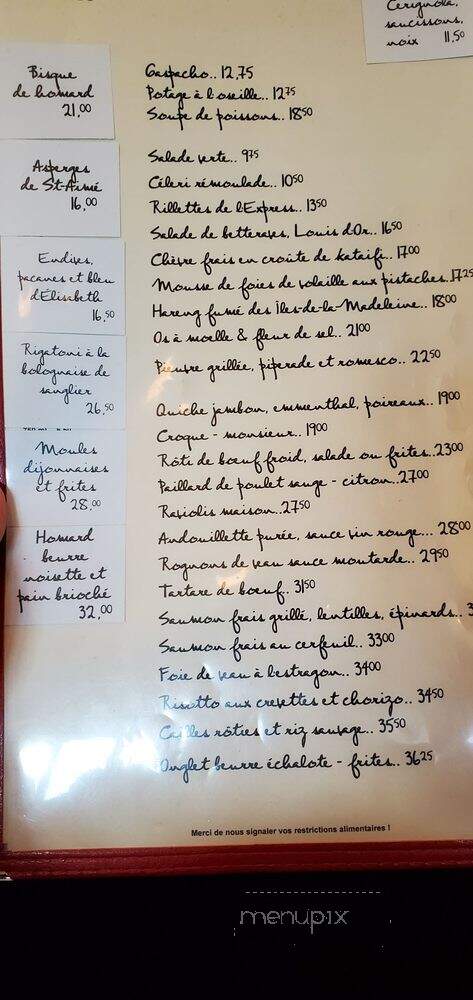 Cerignola,
saucissons,
noix 11,50
Bisque
de homard
21,00
Asperges
de St-Aimé
16,00
Endives,
pacanes et bleu
d'Élisabeth
16,50
Rigatoni à la
bolognaise de
sanglier
26,50
Moules
dijonnaises
et frites
28,00
Homard
beurre
noisette et
pain brioché
32,00
Gaspacho.. 12,75
Potage à l'oseille.. 12 75
Soupe de poissons.. 18 50
Salade verte.. 9 75
Céleri rémoulade.. 10 50
Rillettes de l'Express.. 13 50
Salade de betteraves, Louis d'Or.. 16 50
Chèvre frais en croûte de kataifi.. 17 00
Mousse de foies de volaille aux pistaches..17 25
Hareng fumé des Îles-de-la-Madeleine.. 18 00
Os à moelle & fleur de sel.. 21 00
Pieuvre grillée, piperade et romesco.. 22 50
Quiche jambon, emmenthal, poireaux.. 19 00
Croque-monsieur.. 19 00
Rôti de bœuf froid, salade ou frites..23 00
Paillard de poulet sauge - citron..27 00
Raviolis maison..27 50
Andouillette purée, sauce vin rouge... 28 00
Rognons de veau sauce moutarde.. 29 50
Tartare de bœuf.. 31 50
Saumon frais grillé, lentilles, épinards..
Saumon frais au cerfeuil.. 33 00
Foie de veau à l'estragon.. 34 00
Risotto aux crevettes et chorizo.. 34 50
Cailles rôties et riz sauvage.. 35 50
Onglet beurre échalote - frites.. 36 25
Merci de nous signaler vos restrictions alimentaires !
menupix